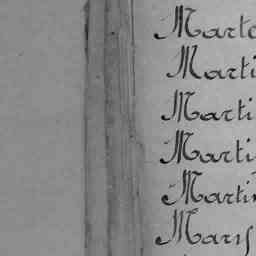 Marte
Marti
Marti
Marti
Martin
Mary